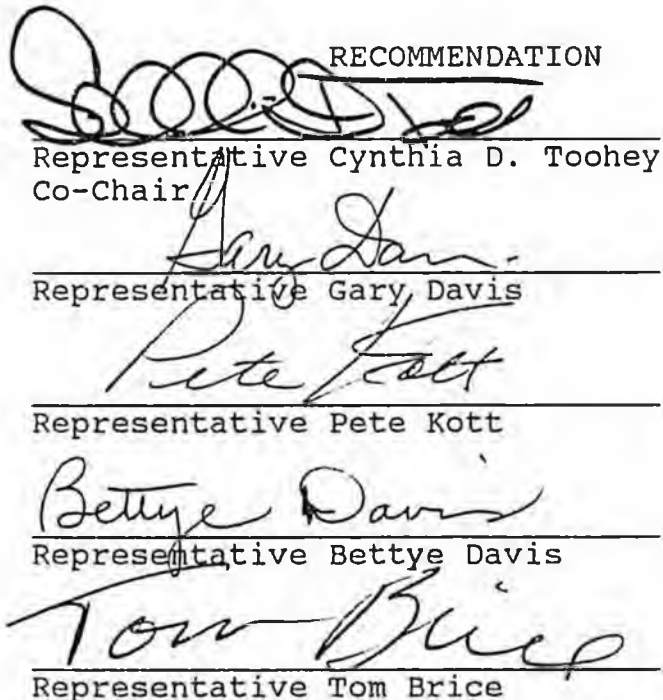 RECOMMENDATION
Representative Cynthia D. Toohey
Co-Chair
Gary Davis
Representative Gary Davis
Pete Kott
Representative Pete Kott
Bettye Davis
Representative Bettye Davis
Tom Brice
Representative Tom Brice